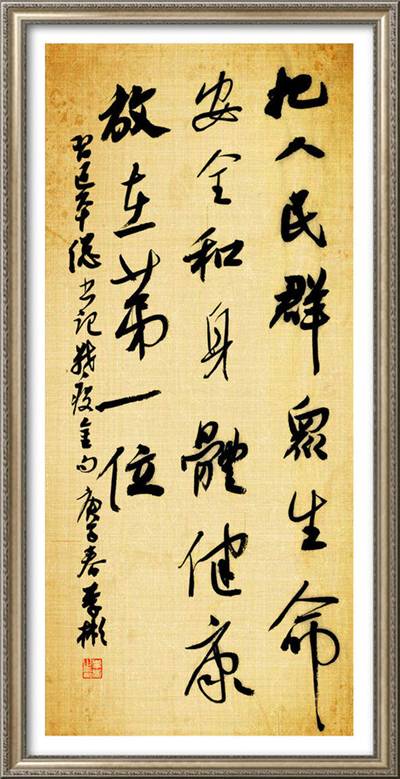 把人民群眾生命
安全和身體健康
放在第一位
习近平總书记戰疫金句 庚子春 李彬